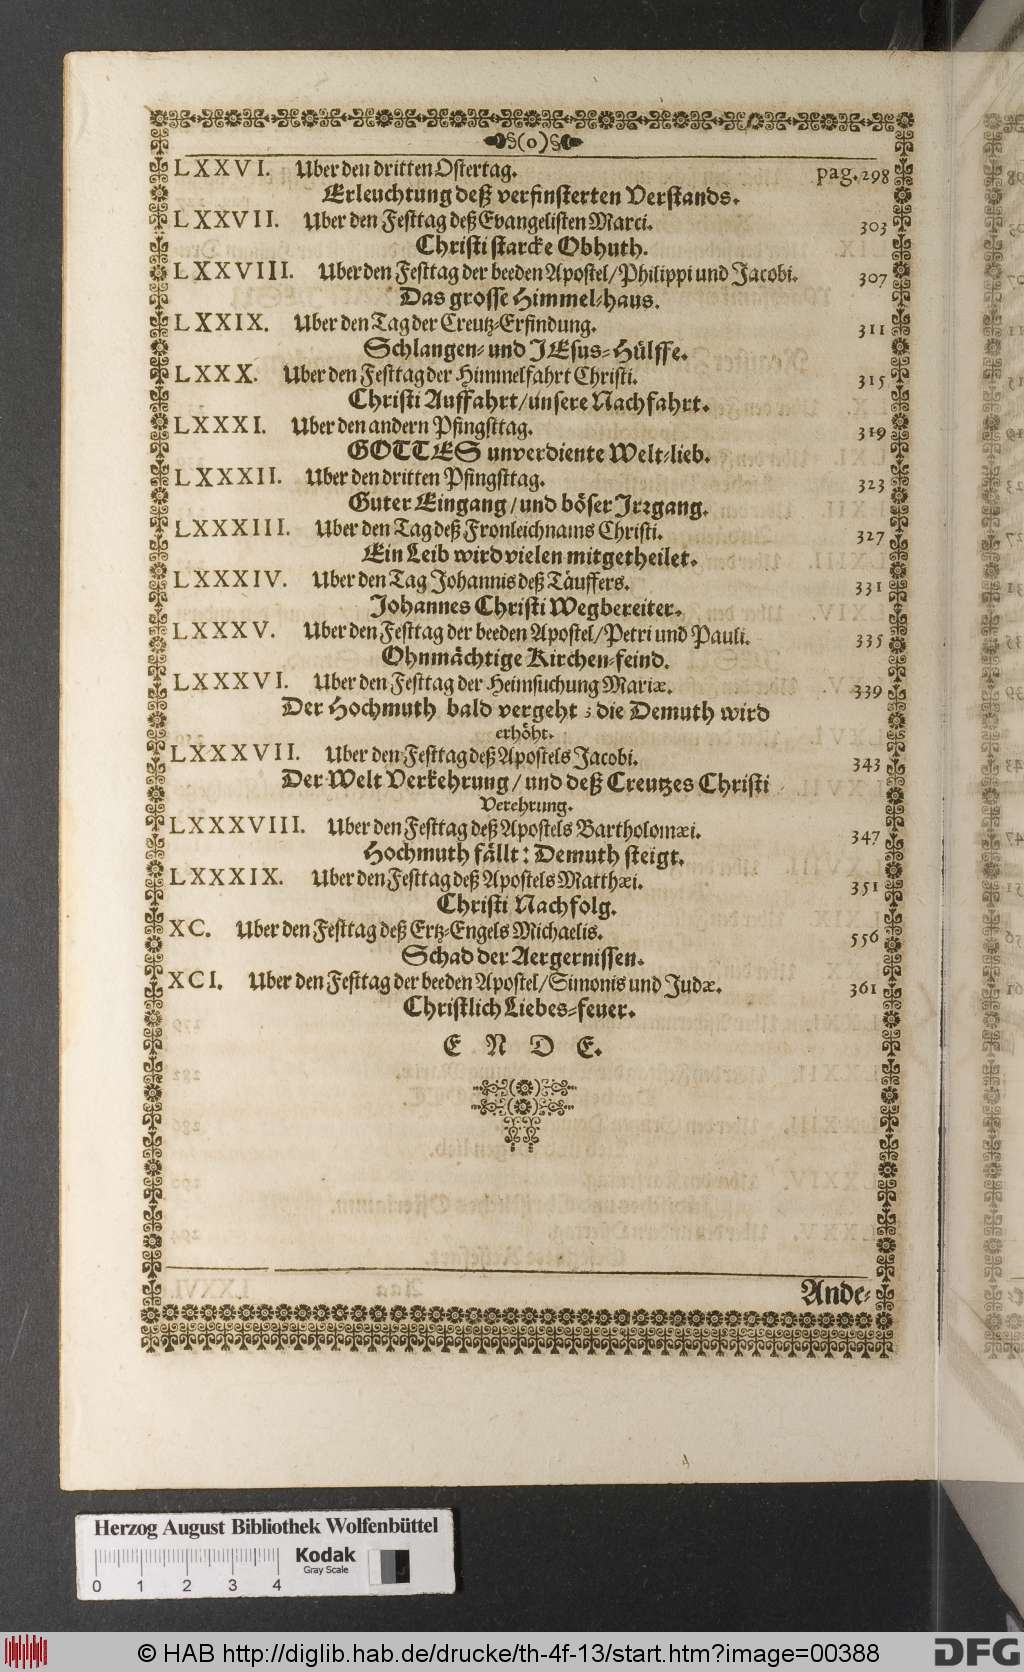 §(o)§
LXXVI. Uber den dritten Ostertag. pag. 298
Erleuchtung deß verfinsterten Verstands.
LXXVII. Uber den Festtag deß Evangelisten Marci. 303
Christi starcke Obhuth.
LXXVIII. Uber den Festtag der beeden Apostel/Philippi und Jacobi. 307
Das grosse Himmel-haus.
LXXIX. Uber den Tag der Creutz-Erfindung. 311
Schlangen- und JEsus-Hülffe.
LXXX. Uber den Festtag der Himmelfahrt Christi. 315
Christi Auffahrt/unsere Nachfahrt.
LXXXI. Uber den andern Pfingsttag. 319
GOTTES unverdiente Welt-lieb.
LXXXII. Uber den dritten Pfingsttag. 323
Guter Eingang/und böser Jrꝛgang.
LXXXIII. Uber den Tag deß Fronleichnams Christi. 327
Ein Leib wird vielen mitgetheilet.
LXXXIV. Uber den Tag Johannis deß Täuffers. 331
Johannes Christi Wegbereiter.
LXXXV. Uber den Festtag der beeden Apostel/Petri und Pauli. 335
Ohnmächtige Kirchen-feind.
LXXXVI. Uber den Festtag der Heimsuchung Mariæ. 339
Der Hochmuth bald vergeht; die Demuth wird
erhöht.
LXXXVII. Uber den Festtag deß Apostels Jacobi. 343
Der Welt Verkehrung/und deß Creutzes Christi
Verehrung.
LXXXVIII. Uber den Festtag deß Apostels Bartholomæi. 347
Hochmuth fällt: Demuth steigt.
LXXXIX. Uber den Festtag deß Apostels Matthæi. 351
Christi Nachfolg.
XC. Uber den Festtag deß Ertz-Engels Michaelis. 556
Schad der Aergernissen.
XCI. Uber den Festtag der beeden Apostel/Simonis und Judæ. 361
Christlich Liebes-feuer.
E N D E.
Ande-
Herzog August Bibliothek Wolfenbüttel
Kodak
Gray Scale
0 1 2 3 4
© HAB http://diglib.hab.de/drucke/th-4f-13/start.htm?image=00388
DFG